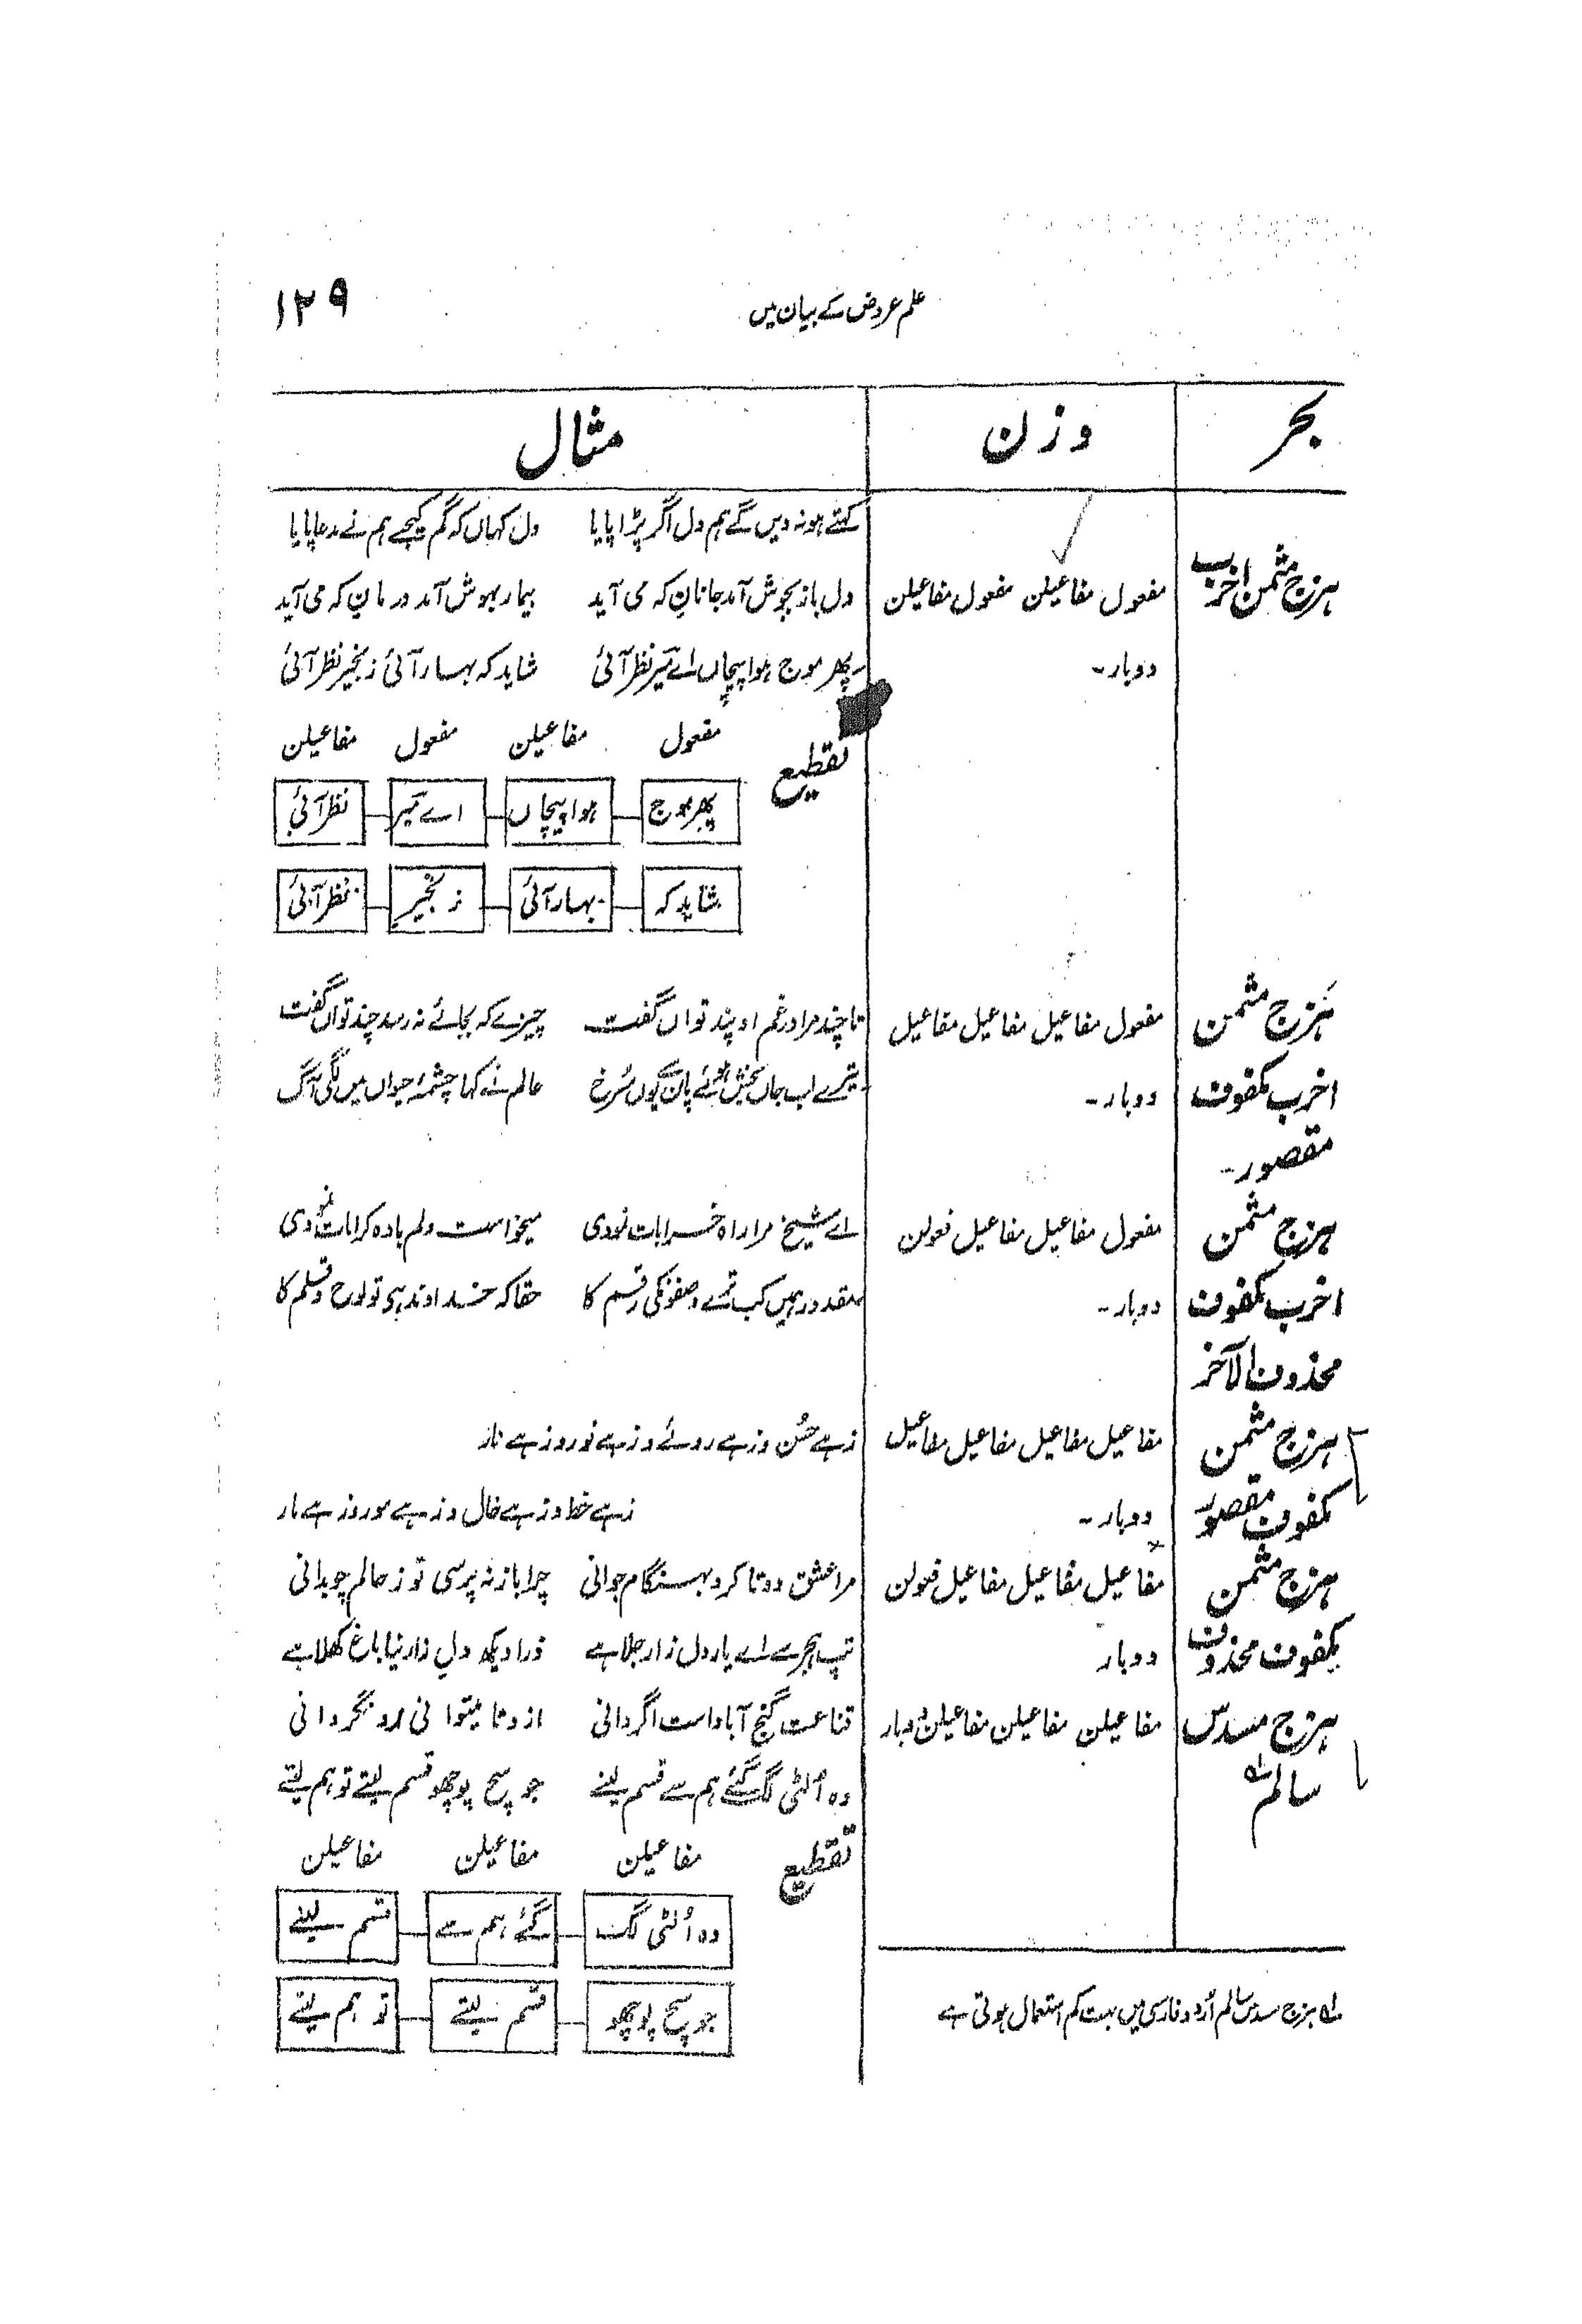 علم عروض کے بیان میں
۱۲۹
بحر
وزن
مثال
ہزج مثمن اخرب
مفعول مفاعیلن مفعول مفاعیلن
دوبار۔
کہتے ہو نہ دیں گے ہم دل اگر پڑا پایا دل کہاں کہ گم کیجے ہم نے مدعا پایا
دل باز بجوش آمد جانان کہ می آید بیمار بہوش آمد درمان کہ می آید
پھر موج ہوا پیچاں اے میر نظر آئی شاید کہ بہار آئی زنجیر نظر آئی
تقطیع
مفعول مفاعیلن مفعول مفاعیلن
پھر موج ہوا پیچاں اے میر نظر آئی
شاید کہ بہار آئی زنجیر نظر آئی
ہزج مثمن
اخرب مکفوف
مقصور۔
مفعول مفاعیل مفاعیل مفاعیل
دوبار۔
تا چند مرا در غم او پند تواں گفت چیزے کہ بجائے نہ رسد چند تواں گفت
تیرے لب جاں بخش ہوئے پان سے یوں سُرخ عالم نے کہا چشمۂ حیواں میں لگی آگ
ہزج مثمن
اخرب مکفوف
محذوف الآخر
مفعول مفاعیل مفاعیل فعولن
دوبار۔
اے شیخ مرا راہ خرابات نمودی میخواست دلم بادہ کرامات نمودی
مقدور ہمیں کب ترے وصفوں کی رقم کا حقا کہ خداوند ہی تو لوح و قلم کا
ہزج مثمن
مکفوف مقصور
مفاعیل مفاعیل مفاعیل مفاعیل
دوبار۔
زہے حُسن و زہے روے و زہے نور و زہے نار
زہے خط و زہے خال و زہے مور و زہے مار
ہزج مثمن
مکفوف محذوف
مفاعیل مفاعیل مفاعیل فعولن
دوبار
مرا عشق دوتا کرد بہنگام جوانی چرا باز نہ پرسی تو ز حالم چو بدانی
تپ ہجر سے اے یار دل زار جلا ہے ذرا دیکھ دلِ زار نیا باغ کھلا ہے
ہزج مسدس
سالم ؎۱
مفاعیلن مفاعیلن مفاعیلن دوبار
قناعت گنج آباد است اگر دانی از و تا میتوانی رو نگردانی
وہ اُلٹی لگ گئے ہم سے قسم لینے جو سچ پوچھو قسم لیتے تو ہم لیتے
تقطیع
مفاعیلن مفاعیلن مفاعیلن
وہ اُلٹی لگ گئے ہم سے قسم لینے
جو سچ پوچھو قسم لیتے تو ہم لیتے
؎۱ ہزج مسدس سالم اُردو فارسی میں بہت کم استعمال ہوتی ہے